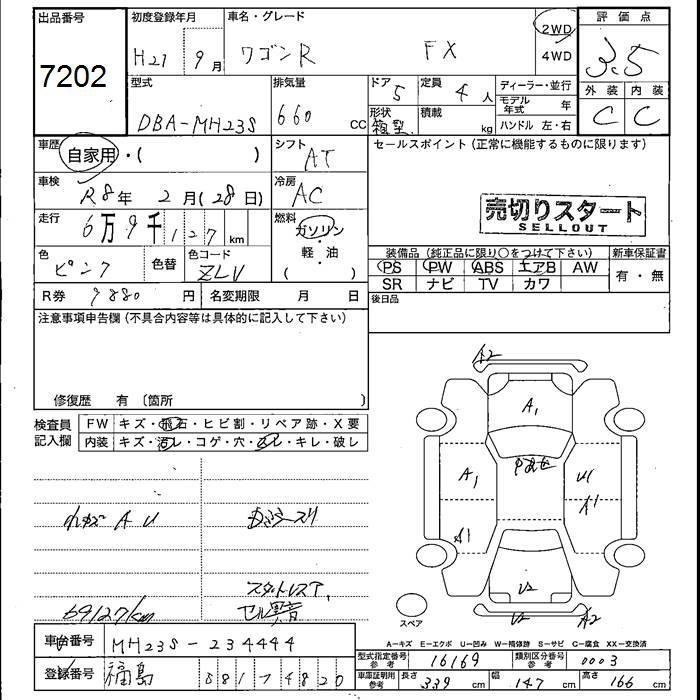 出品番号 初度登録年月 車名・グレード 評価点
7202
H21 9月 ワゴンR FX 2WD 4WD 3.5
型式 排気量 ドア 定員 ディーラー・並行 外装 内装
DBA-MH23S 660 CC 5 4人 モデル年式 年 C C
形状 箱型 積載 kg ハンドル 左・右
車歴 自家用・( ) シフト AT セールスポイント (正常に機能するものに限ります)
車検 R8年 2月(28日) 冷房 AC
売切りスタート
SELLOUT
走行 6万9千127 km 燃料 ガソリン・軽・油 ( )
色 ピンク 色替 色コード ZLV
装備品 (純正品に限り○をつけて下さい) 新車保証書
PS PW ABS エアB AW 有・無
SR ナビ TV カワ
R券 9880 円 名変期限 月 日 後日品
注意事項申告欄 (不具合内容等は具体的に記入して下さい)
修復歴 有 〔箇所 〕
検査員記入欄 FW キズ・飛石・ヒビ割・リペア跡・X要
内装 キズ・汚レ・コゲ・穴・スレ・キレ・破レ
A2
A1
A1 U1
A1
A1
U2
U2 A2
スペア
A U
69127km
スタットレスT,
A−キズ E−エクボ U−凹み W−補修跡 S−サビ C−腐食 XX−交換済
車台番号 MH23S-234444
型式指定番号 参考 16169 類別区分番号 参考 0003
登録番号 福島 581 ナ 4820
車庫証明用 参考 長さ 339 cm 幅 147 cm 高さ 166 cm